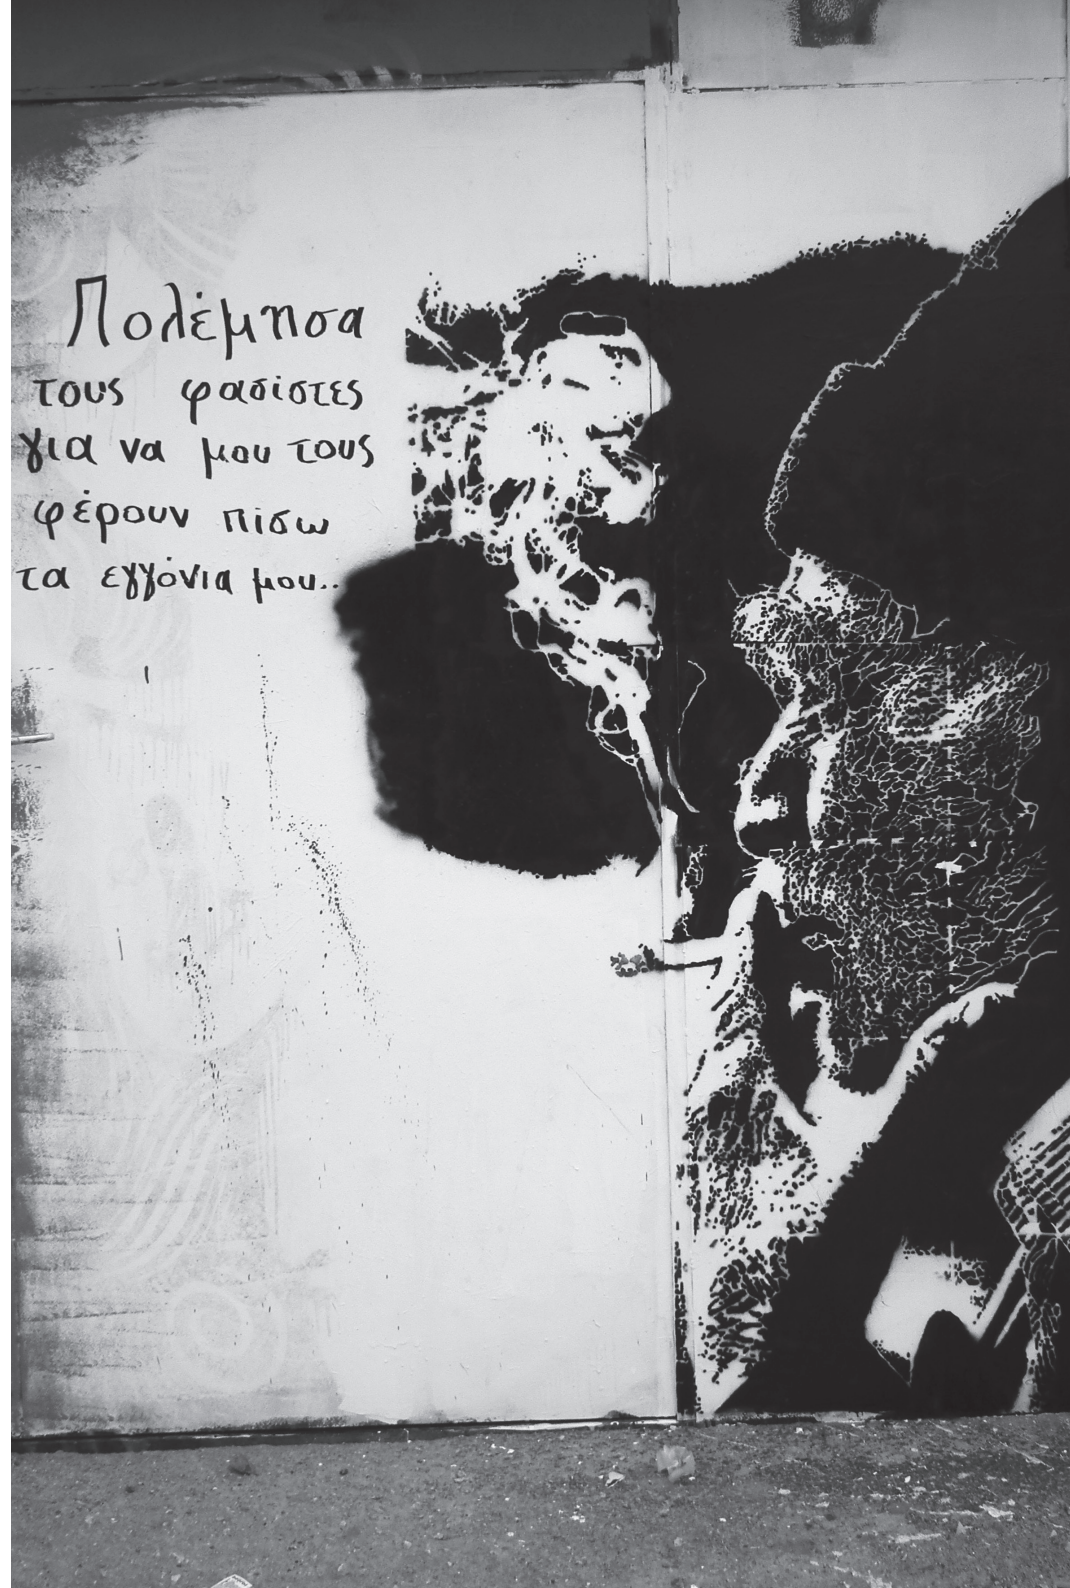 Πολέμησα
τους φασίστες
για να μου τους
φέρουν πίσω
τα εγγόνια μου..